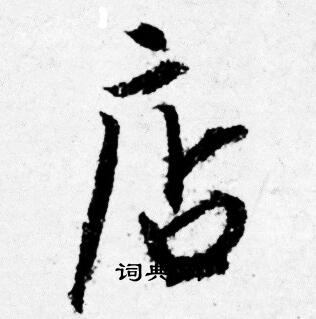 店
词典